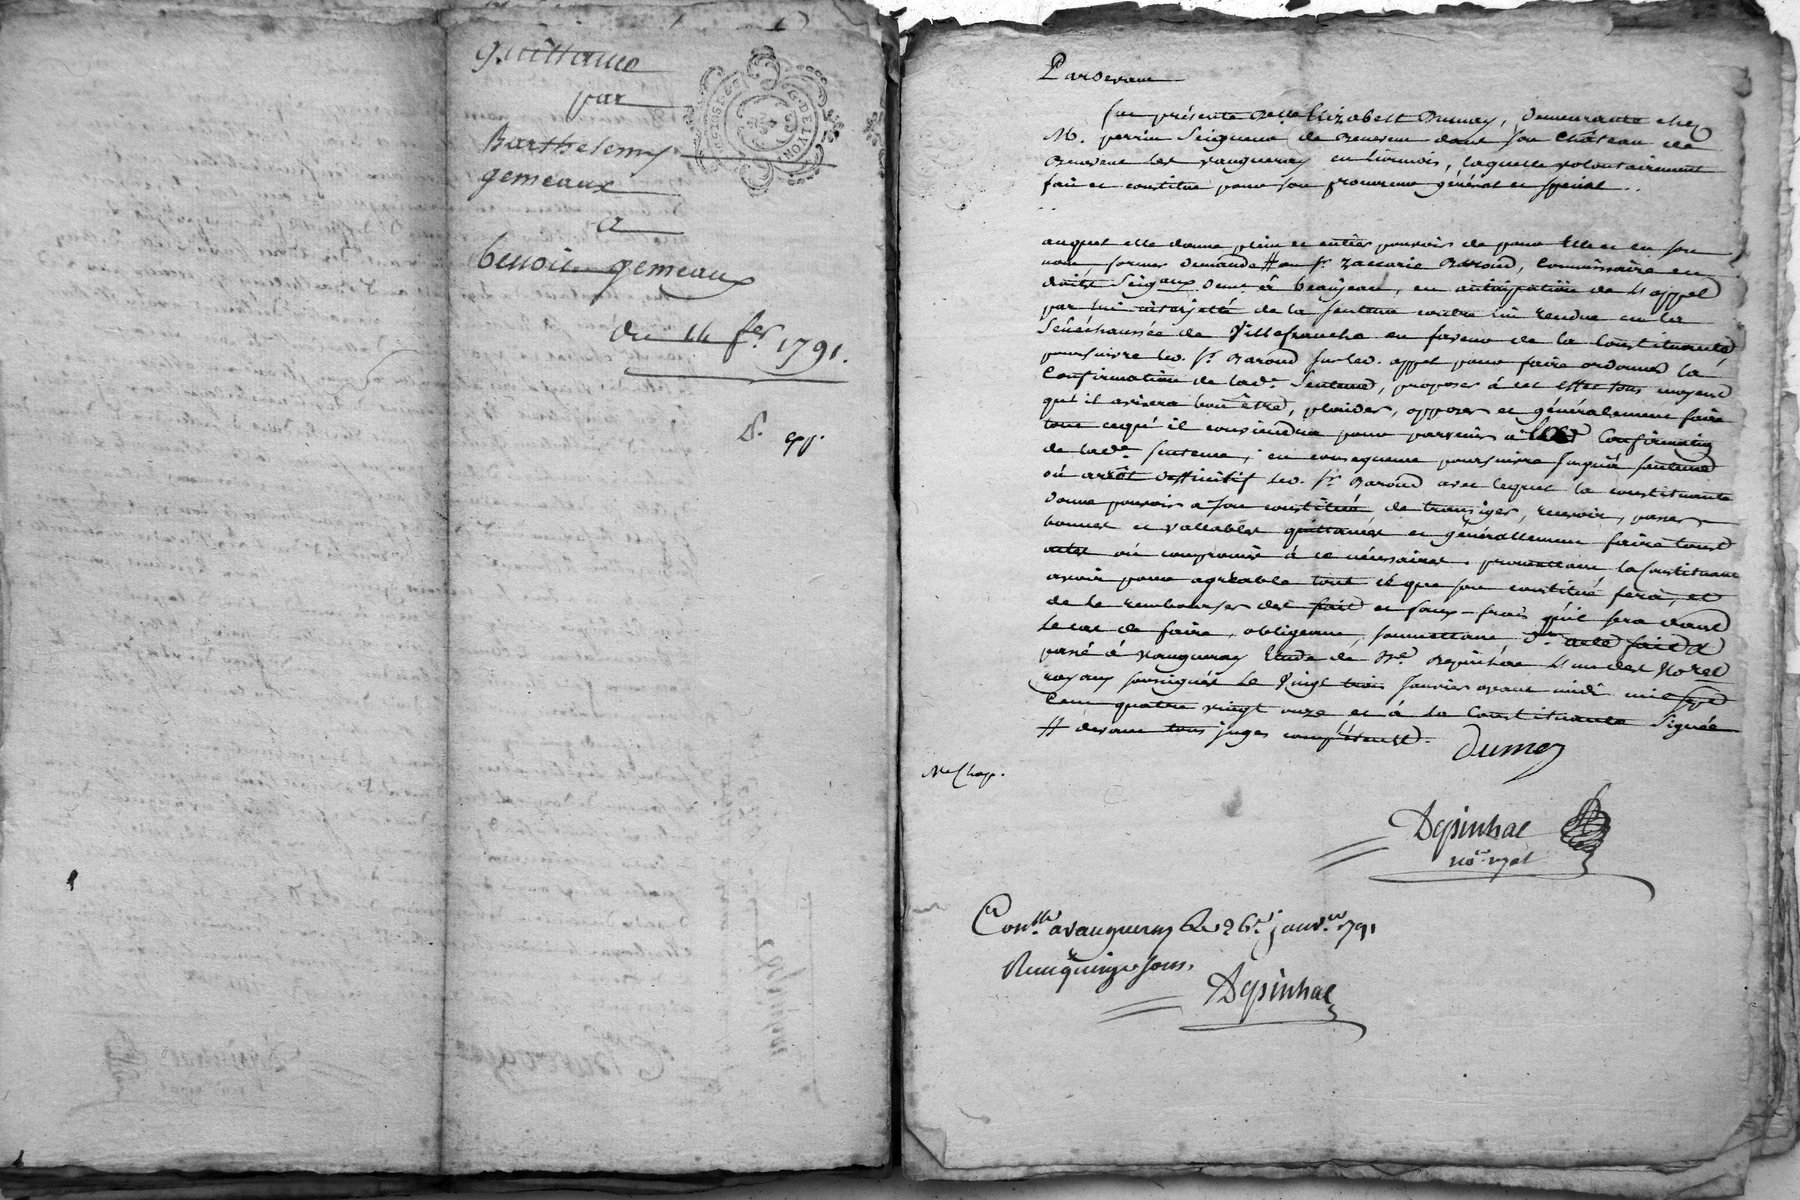 quittance
par
Barthelemy
gemeaux
a
benoit gemeaux
du 14 fer 1791.
D. exp.
G. DE LYON
Pardevant
fut présente Delle Elizabeth Dumey, demeurante chez
M. perrin Seigneur de Benevent dans son Château de
Benevent les vaugneray en Lionnois, laquelle volontairement
fait et constitue pour son procureur général et spécial ..
auquel elle donne plein et entier pouvoir de pour Elle et en son
nom former demande # au Sr. Zaccarie Baroud, Commissaire en
droits Seigaux demt. à Beaujeau, en anticipation de L'appel
par lui interjetté de la sentence contre lui rendue en la
Sénéchaussée de Villefranche en faveur de la Constituante
poursuivre led. Sr. Baroud sur led. appel pour faire ordonner la
Confirmation de lade. Sentence, proposer à cet effet tous moyens
qu'il avisera bon être, plaider, opposer et généralement faire
tout ce qu'il conviendra pour parvenir à la Confirmation
de lade. sentence, en consequence poursuivre jusqu'à sentence
ou arrêt deffinitif led. Sr. Baroud avec lequel la constituante
donne pouvoir à son constitué de transiger, recevoir, passer
bonnes et vallables quittances et générallement faire tous
actes ou compromis à ce nécessaires, promettant la Constituante
avoir pour agréable tout ce que son constitué fera, et
de le rembourser des frais et faux-frais qu'il sera dans
le cas de faire, obligeant, soumettant Dt. acte fait &
passé à vaugneray Etude de Me. Depinhac L'un des Nores
royaux soussignés le Vingt trois Janvier avant midi mil sept
Cent quatre vingt onze et à la Constituante Signée
# devant tous juges compétents.
Dumey
Depinhac
nore. royal
Conllé. a vaugneray Le 26. janvr. 1791
Reçu quinze sous.
Depinhac